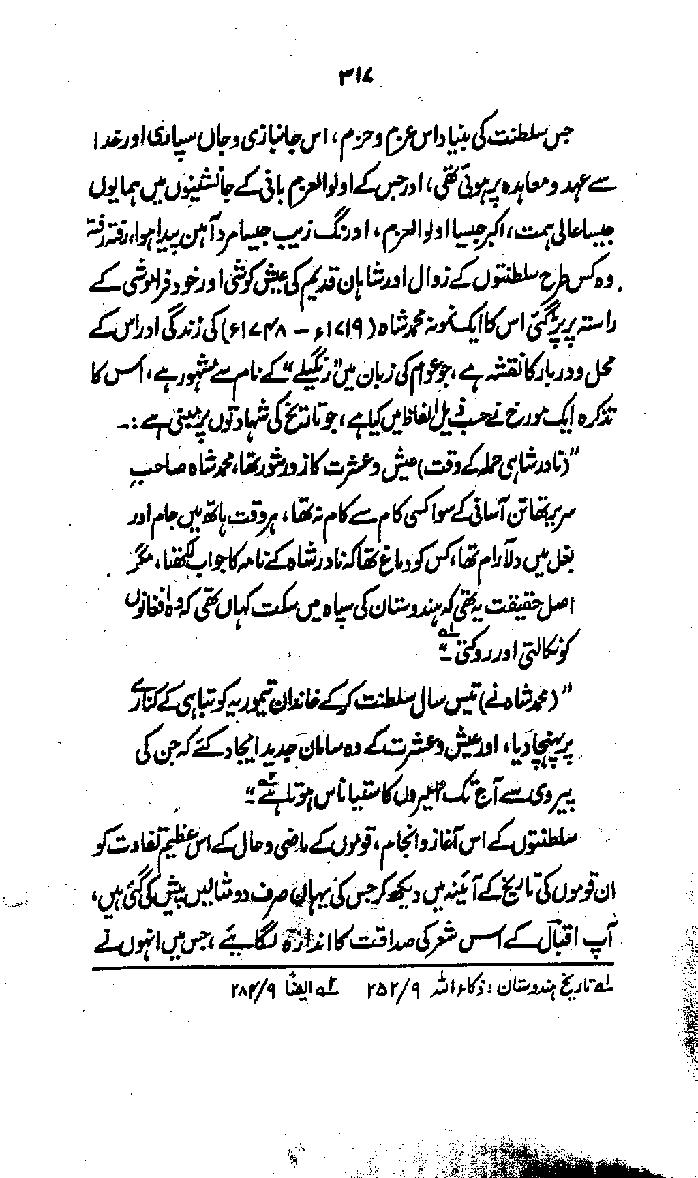 ۳۱۷
جس سلطنت کی بنیاد اس عزم و حزم، اس جانبازی و جاں سپاری اور خدا
سے عہد و معاہدہ پر ہوئی تھی، اور جس کے اولوالعزم بانی کے جانشینوں میں ہمایوں
جیسا عالی ہمت، اکبر جیسا اولوالعزم، اورنگ زیب جیسا مرد آہن پیدا ہوا، رفتہ رفتہ
وہ کس طرح سلطنتوں کے زوال اور شاہان قدیم کی عیش کوشی اور خود فراموشی کے
راستہ پر پڑ گئی اس کا ایک نمونہ محمد شاہ (۱۷۱۹ء – ۱۷۴۸ء) کی زندگی اور اس کے
محل و دربار کا نقشہ ہے، جو عوام کی زبان میں "رنگیلے" کے نام سے مشہور ہے، اس کا
تذکرہ ایک مورخ نے حسب ذیل الفاظ میں کیا ہے، جو تاریخ کی شہادتوں پر مبنی ہے:۔
"(نادر شاہی حملہ کے وقت) عیش و عشرت کا زور شور تھا، محمد شاہ صاحب
سریر تھا تن آسانی کے سوا کسی کام سے کام نہ تھا، ہر وقت ہاتھ میں جام اور
بغل میں دلآرام تھا، کس کو دماغ تھا کہ نادر شاہ کے نامہ کا جواب لکھتا، مگر
اصل حقیقت یہ تھی کہ ہندوستان کی سپاہ میں سکت کہاں تھی کہ وہ افغانوں
کو نکالتی اور روکتی۔"۱ے
"(محمد شاہ نے) تیس سال سلطنت کر کے خاندان تیموریہ کو تباہی کے کنارے
پر پہنچا دیا، اور عیش و عشرت کے وہ سامان جدید ایجاد کئے کہ جن کی
پیروی سے آج تک امیروں کا ستیاناس ہوتا ہے۔"۲ے
سلطنتوں کے اس آغاز و انجام، قوموں کے ماضی و حال کے اس عظیم تفاوت کو
ان قوموں کی تاریخ کے آئینہ میں دیکھ کر جس کی یہاں صرف دو مثالیں پیش کی گئی ہیں،
آپ اقبال کے اس شعر کی صداقت کا اندازہ لگائیے، جس میں انہوں نے
۱ے تاریخ ہندوستان: ذکاء اللہ ۹/۲۵۲ ۲ے ایضاً ۹/۲۸۲